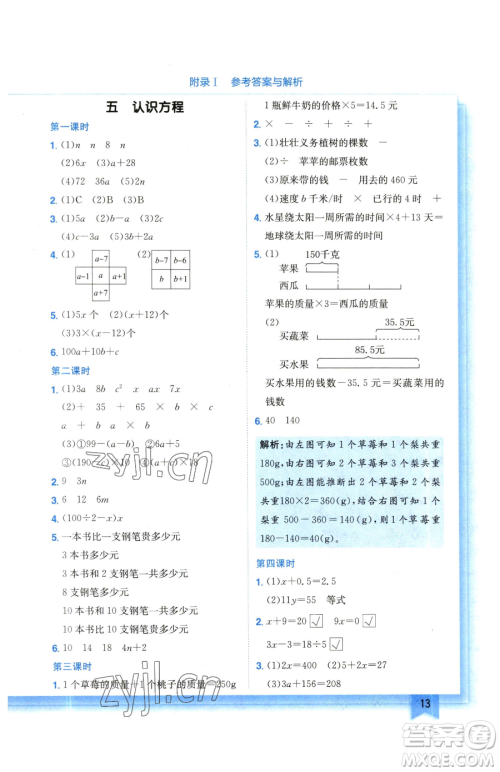 附录Ⅰ 参考答案与解析
五 认识方程
第一课时
1. (1)n n 8 n
(2)6x (3)a+28
(4)72 36a 3n
2. (1)C (2)B (3)B
3. (1)5a (2)b-a (3)2b
(4)3c-a (5)3a-b
4. (1) a-7 a-1 a a+1 a+7 (2) b-7 b-6 b-1 b
5. (1)5x 个 (2)2b 个
(3)3×(2+b)个
6. 100a+10b+c
第二课时
1. (1)3a 8b c² ax 7x
(2)+ + x 6 5 × × c
a + a × b × c
(3)①99-(a-b) ②a+5
③(190-2c)×10 ④7a
2. 9 3n
3. 6 12 6m
4. (100÷2-x)x
5. 一本书比一支钢笔贵多少元
3 本书多少元
3 本书和 2 支钢笔一共多少元
8 支钢笔多少元
10 本书和 10 支钢笔一共多少元
10 本书比 10 支钢笔贵多少元
6. 10 14 18 4n+2
第三课时
1. 1 个草莓的质量+1 个桃子的质量=250g
1 瓶鲜牛奶的价格×5=14.5 元
2. × × - ÷ + ÷ +
3. (1)壮壮义务植树的棵数 -
(2)÷ 苹苹的邮票枚数
(3)原来带的钱 - 用去的 460 元
(4)速度 b 千米/时 × 已行的 4 时
4. 水星绕太阳一周所需的时间×4+13 天=
地球绕太阳一周所需的时间
5. (1)
150千克
苹果
西瓜
苹果的质量×3=西瓜的质量
(2)
35.5元
买蔬菜
买水果
买水果用的钱数-35.5 元=买蔬菜用的
钱数
6. 40 140
解析:由左图可知 1 个草莓和 1 个梨共重
180g,由右图可知 1 个草莓和 3 个梨共重
500g;由左图能推断出 2 个草莓和 2 个梨共
重180×2=360(g),结合右图可知 1 个
梨重 500-360=140(g),则 1 个草莓重
180-140=40(g)。
第四课时
1. (1)x+0.5=1.5
(2)11y=55 等式
2. x+9=20 √ 9x=0 √
3x-3=18÷5 √
3. (1)2x=154 (2)x-20=138
(3)156+a=208
13
zyjl.cn
zyjl.cn
答案圈
MXQE.COM